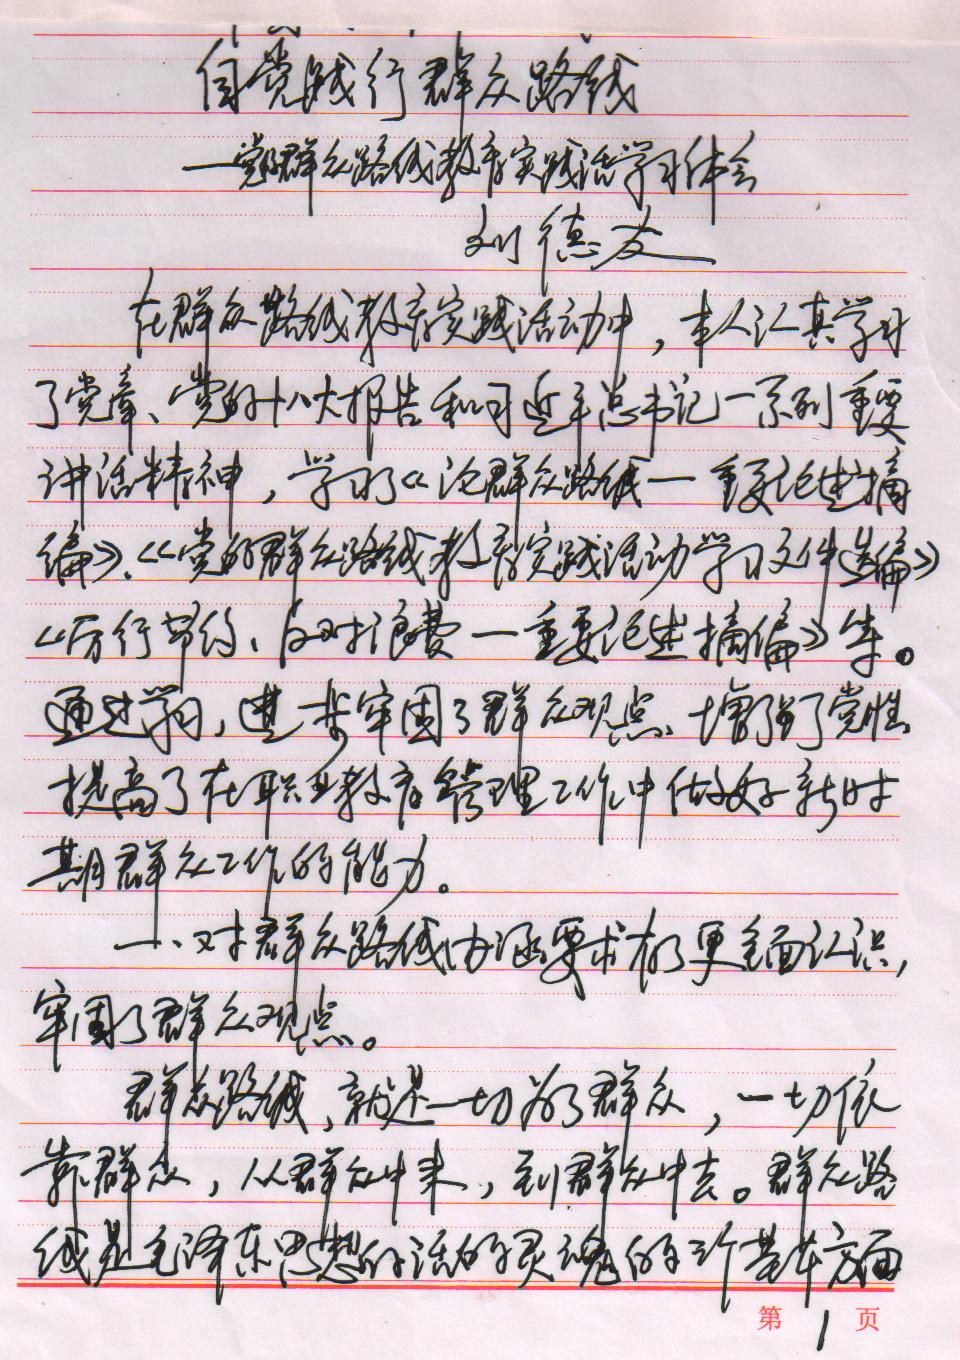 自觉践行群众路线
—党的群众路线教育实践活学习体会
刘德友
在群众路线教育实践活动中，本人认真学习
了党章、党的十八大报告和习近平总书记一系列重要
讲话精神，学习了《论群众路线—重要论述摘
编》、《党的群众路线教育实践活动学习文件选编》
《厉行节约、反对浪费—重要论述摘编》等。
通过学习，进一步牢固了群众观点、增强了党性、
提高了在职业教育管理工作中做好新时
期群众工作的能力。
一、对群众路线内涵要求有了更全面认识，
牢固了群众观点。
群众路线，就是一切为了群众，一切依
靠群众，从群众中来，到群众中去。群众路
线是毛泽东思想的活的灵魂的三个基本方面
第1页